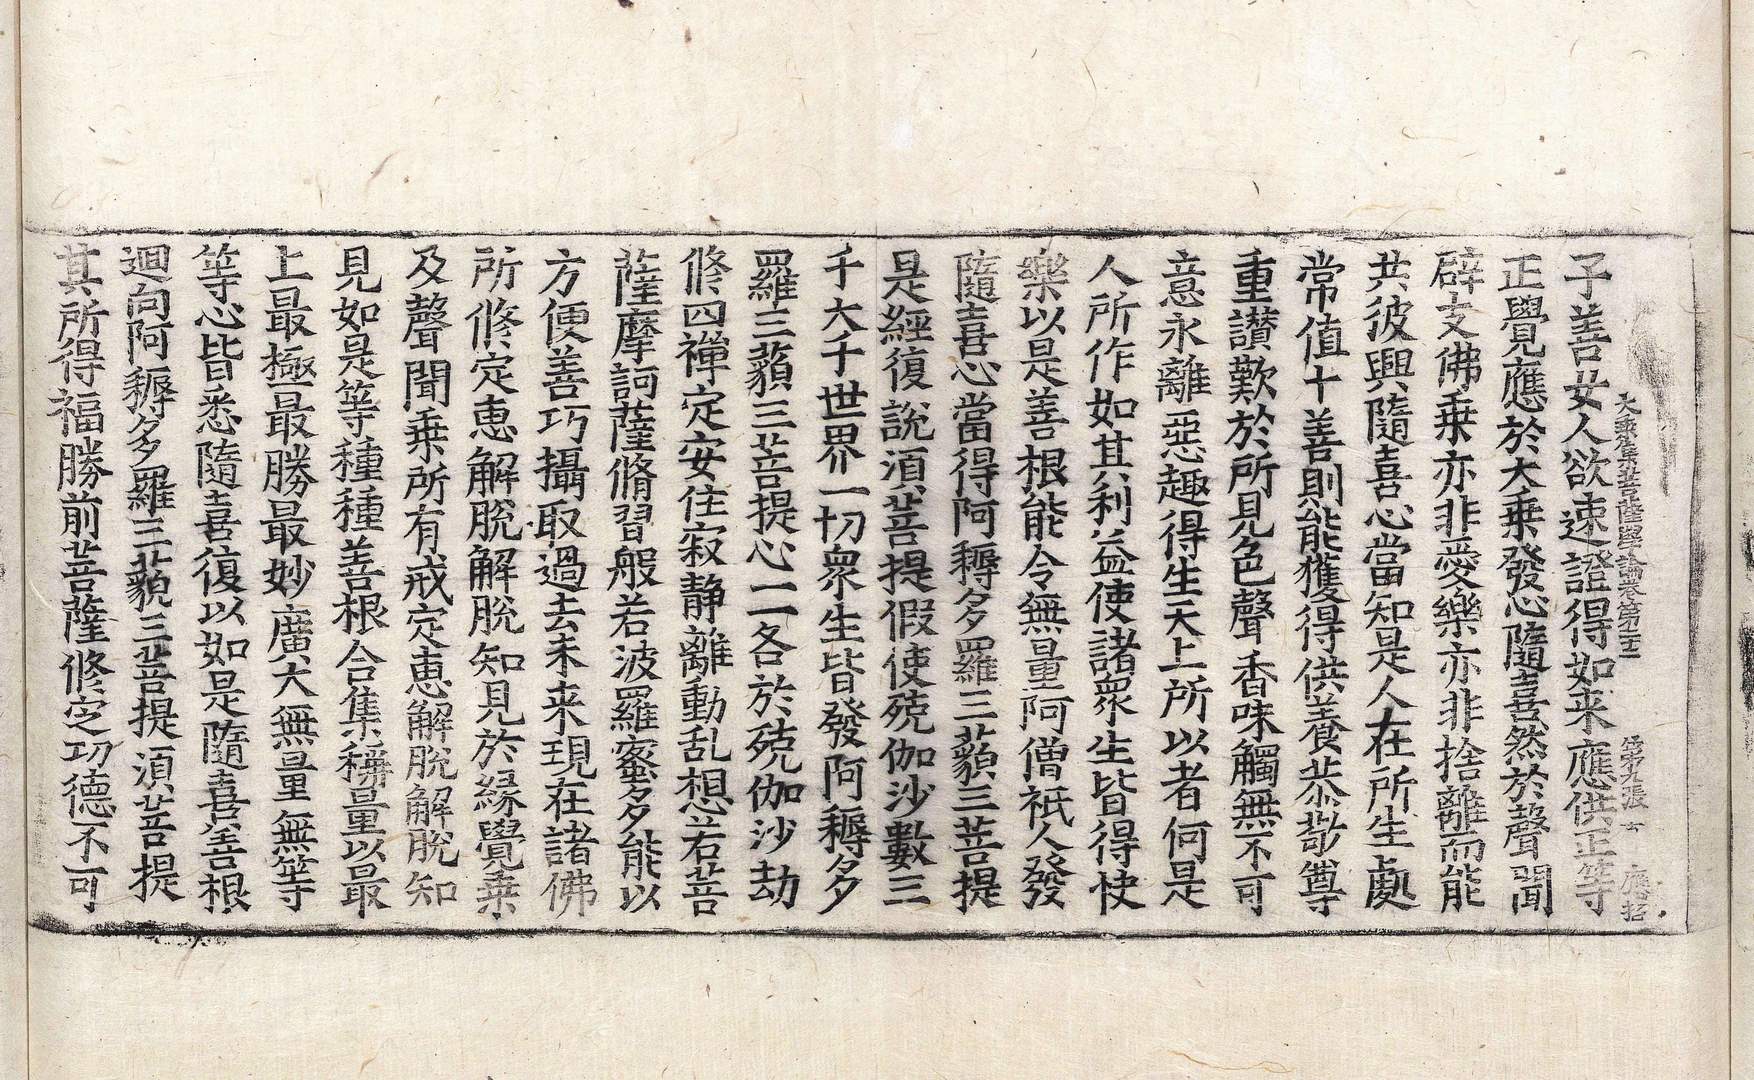 大乘集菩薩學論卷第廿一 第九張 才 應招
子善女人欲速證得如来應供正等
正覺應於大乗發心隨喜然於聲聞
辟支佛乗亦非愛樂亦非捨離而能
共彼興隨喜心當知是人在所生處
常值十善則能獲得供養恭敬尊
重讃歎於所見色聲香味觸無不可
意永離惡趣得生天上所以者何是
人所作如其利益使諸衆生皆得快
樂以是善根能令無量阿僧祇人發
隨喜心當得阿耨多羅三藐三菩提
是經復說湏菩提假使殑伽沙數三
千大千世界一切衆生皆發阿耨多
羅三藐三菩提心一一各於殑伽沙劫
修四禪定安住寂静離動乱想若菩
薩摩訶薩脩習般若波羅蜜多能以
方便善巧攝取過去未来現在諸佛
所修定惠解脫解脫知見於縁覺乗
及聲聞乗所有戒定惠解脫解脫知
見如是等種種善根合集稱量以最
上最極最勝最妙廣大無量無等
等心皆悉隨喜復以如是隨喜善根
迴向阿耨多羅三藐三菩提湏菩提
其所得福勝前菩薩修定功德不可